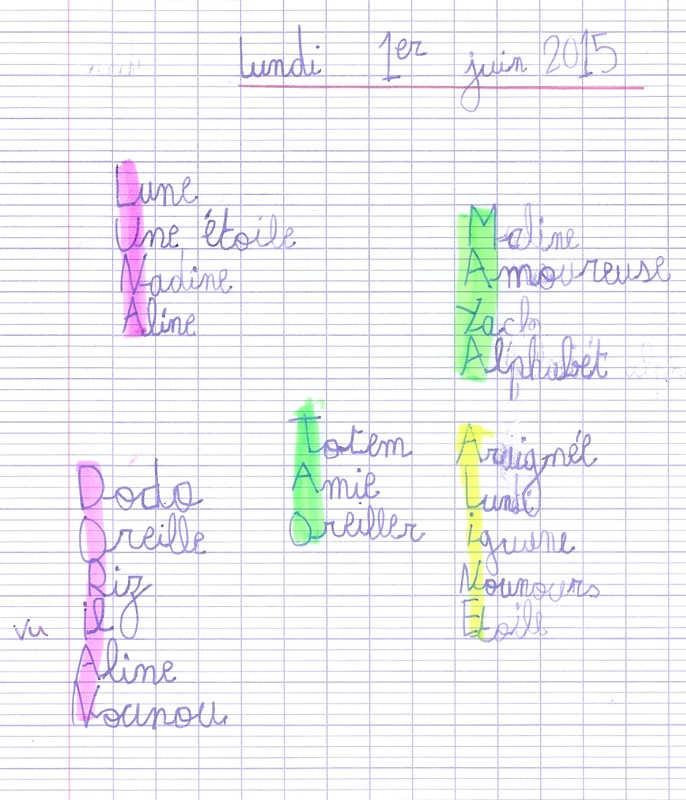 lundi 1er juin 2015
Lune
Une étoile
Nadine
Aline
Maline
Amoureuse
Yack
Alphabét
Totem
Amie
Oreiller
Araignée
Lundi
iguane
Nounours
Etoile
Dodo
Oreille
Riz
il
Aline
Nounou
vu